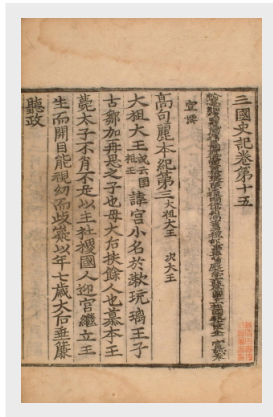 三國史記卷第十五
宣撰
高句麗本紀第三 大祖大王 次大王
大祖大王 或云國祖王 諱宮小名於漱琉璃王子
古鄒加再思之子也母大后扶餘人也慕本王
薨太子不肖不足以主社稷國人迎宮繼立王
生而開目能視幼而岐嶷以年七歲大后垂簾
聽政